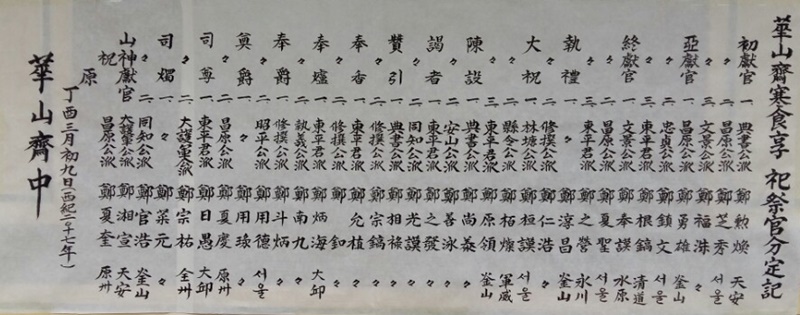 華山齋寒食享祀祭官分定記
初獻官 一 典書公派 鄭勲煥 天安
〃 二 昌原公派 鄭芝秀 서울
〃 三 文景公派 鄭福洙 〃
亞獻官 一 昌原公派 鄭勇雄 釜山
〃 二 忠貞公派 鄭鎮文 서울
〃 三 東平君派 鄭根鎬 清道
終獻官 一 文景公派 鄭奉謨 水原
〃 二 昌原公派 鄭夏聖 서울
〃 三 東平君派 鄭之營 永川
執禮 一 〃 鄭淳昌 釜山
〃 二 修撰公派 鄭仁浩 〃
大祝 一 林塘公派 鄭桓謨 서울
〃 二 縣令公派 鄭柘燦 軍威
〃 三 東平君派 鄭原領 釜山
陳設 一 典書公派 鄭尚泰 〃
〃 二 安山公派 鄭善泳 〃
謁者 一 東平君派 鄭之發 〃
〃 二 同知公派 鄭光謨 〃
贊引 一 典書公派 鄭相祿 〃
〃 二 修撰公派 鄭宗鎬 〃
奉香 一 東平君派 鄭允植 〃
〃 二 修撰公派 鄭釦 〃
奉爐 一 東平君派 鄭炳海 大邱
〃 二 執義公派 鄭南九 〃
奉爵 一 修撰公派 鄭斗炳 〃
〃 二 昭平公派 鄭用德 서울
奠爵 一 〃 鄭用琰 〃
〃 二 昌原公派 鄭夏慶 原州
司尊 一 東平君派 鄭日愚 大邱
〃 二 大護軍公派 鄭宗祐 全州
司燭 一 〃 鄭榮元 〃
〃 二 同知公派 鄭官浩 釜山
山神獻官 大護軍公派 鄭湘宣 天安
〃 祝 昌原公派 鄭夏奎 原州
原
丁酉三月初九日(西紀二千十七年)
華山齋中